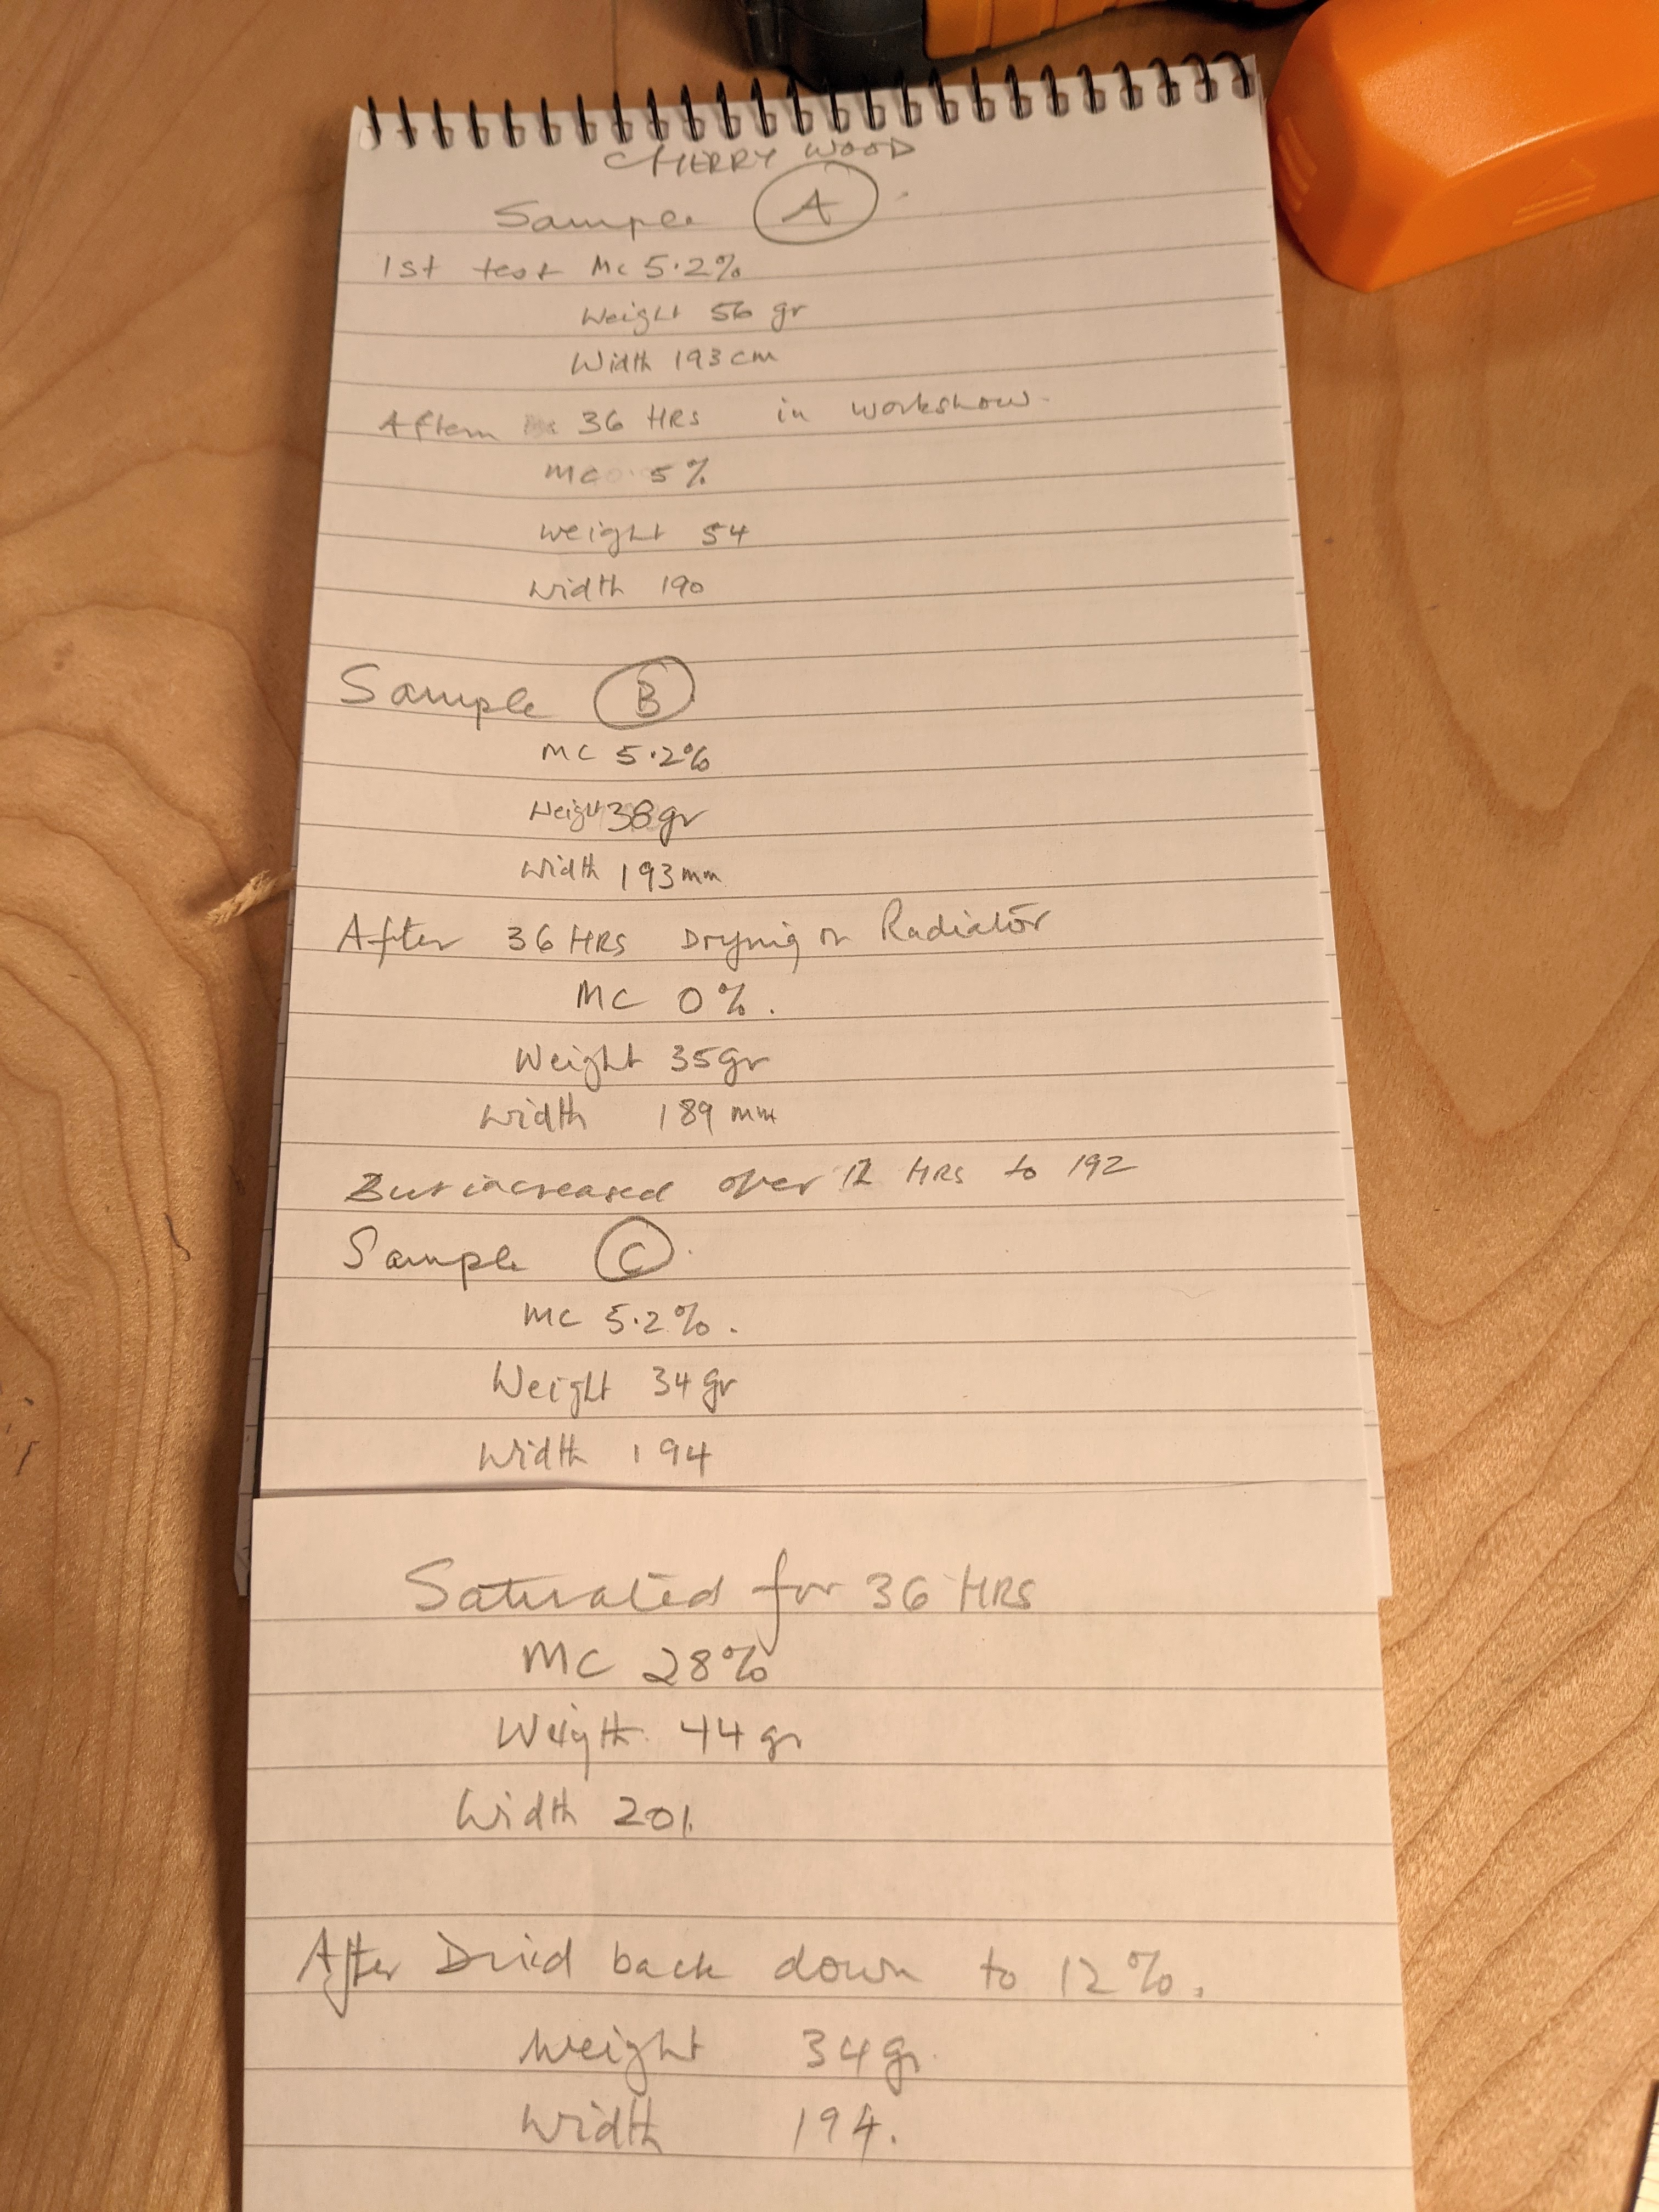 CHERRY WOOD
Sample A
1st test Mc 5.2%
Weight 56 gr
Width 193 cm
Aftern 36 HRS in workshow
MC 5%
Weight 54
Width 190
Sample B
MC 5.2%
Weight 38gr
Width 193mm
After 36 HRS Drying on Radiator
MC 0%.
Weight 35gr
Width 189 mm
But increased over 12 HRS to 192
Sample C
MC 5.2%.
Weight 34 gr
Width 194
Saturated for 36 HRS
MC 28%
Weigth 44 gr
Width 201.
After Dried back down to 12%.
Weight 34gr.
Width 194.